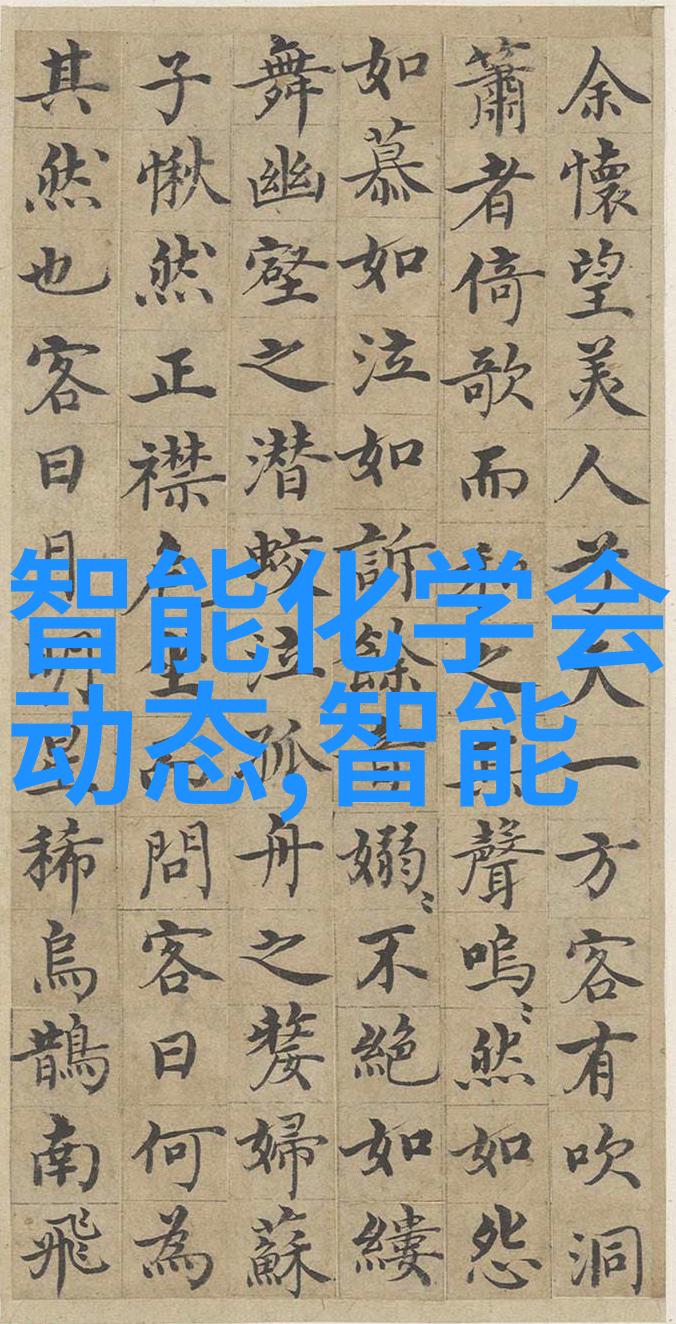 余懷望美人兮天一方客有吹洞
簫者倚歌而和之其聲嗚〻然如怨
如慕如泣如訴餘音嫋〻不絕如縷
舞幽壑之潜蛟泣孤舟之嫠婦蘇
子愀然正襟危坐而問客曰何為
其然也客曰月明星稀烏鵲南飛
智能化学会
动态,智能